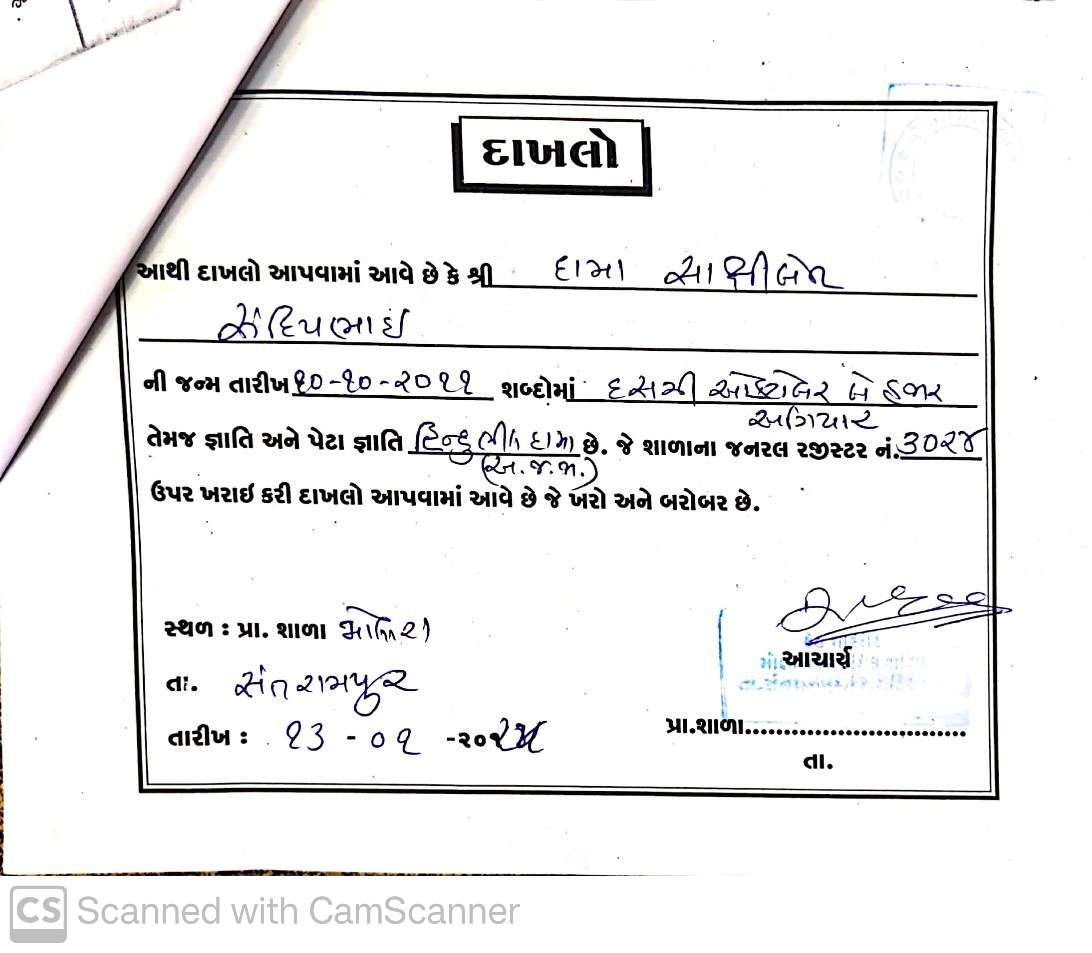 દાખલો
આથી દાખલો આપવામાં આવે છે કે શ્રી ડામોર સાક્ષીબેન
સંદિપભાઈ
ની જન્મ તારીખ ૧૦-૧૦-૨૦૧૧ શબ્દોમાં દસમી ઓક્ટોબર બે હજાર
અગિયાર
તેમજ જ્ઞાતિ અને પેટા જ્ઞાતિ હિન્દુ ભીલ છે. જે શાળાના જનરલ રજીસ્ટર નં. ૩૦૨૪
(અ.જ.જા.)
ઉપર ખરાઇ કરી દાખલો આપવામાં આવે છે જે ખરો અને બરોબર છે.
સ્થળ : પ્રા. શાળા
આચાર્ય
તા. સંતરામપુર
પ્રા.શાળા..............................
તારીખ : ૧૩ - ૦૧ -૨૦
તા.
CS Scanned with CamScanner